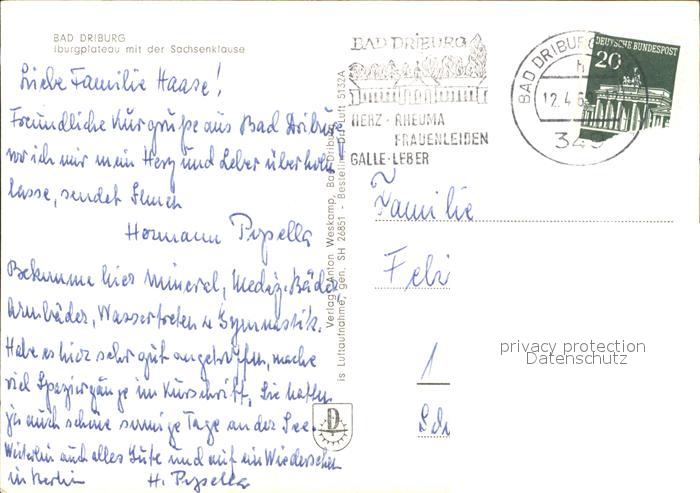 BAD DRIBURG
Iburgplateau mit der Sachsenklause
Liebe Familie Haase!
Freundliche Kurgrüße aus Bad Driburg
wo ich mir mein Herz und Leber überholen
lasse, sendet Ihnen
Hermann Pysella
Bekomme hier Mineral, Mediz. Bäder,
Armbäder, Wassertreten u Gymnastik.
Habe es hier sehr gut angetroffen, mache
viel Spaziergänge im Kurschritt. Sie hatten
ja auch schöne sonnige Tage an der See.
Weiterhin auch alles Gute und auf ein Wiedersehen
in Berlin H. Pysella
Verlag Anton Weskamp, Bad Driburg
is Luftaufnahme, gen. SH 26851 - Bestellnr. Dri Luft 5132A
D
BAD DRIBURG
HERZ · RHEUMA
FRAUENLEIDEN
GALLE · LEBER
BAD DRIBURG
h
12.4.6
349
DEUTSCHE BUNDESPOST
20
Familie
Feli
1
privacy protection
Datenschutz